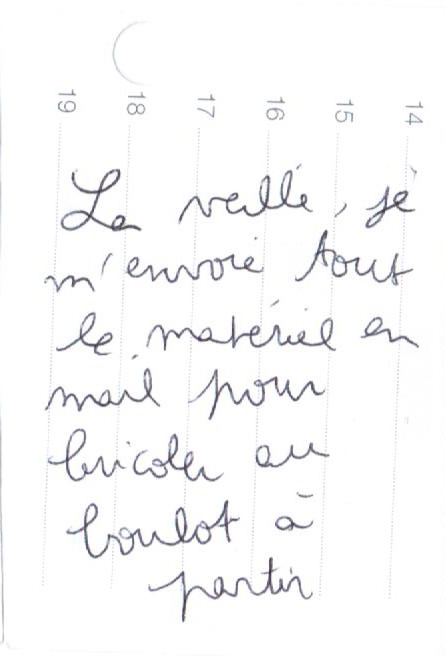 19 18 17 16 15 14
La veille, je
m'envoie tout
le matériel en
mail pour
bricoler au
boulot à
partir